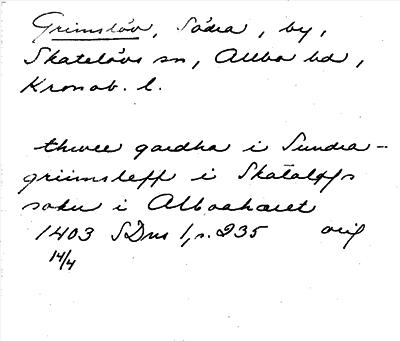 Grimslöv, Södra, by,
Skatelövs sn, Allbo hd,
Kronob. l.
thwee gardha i Sundra-
griimsleff i Skataløfs
sokn i Alboahæret
1403 SDns 1, s. 235 orig
14/4